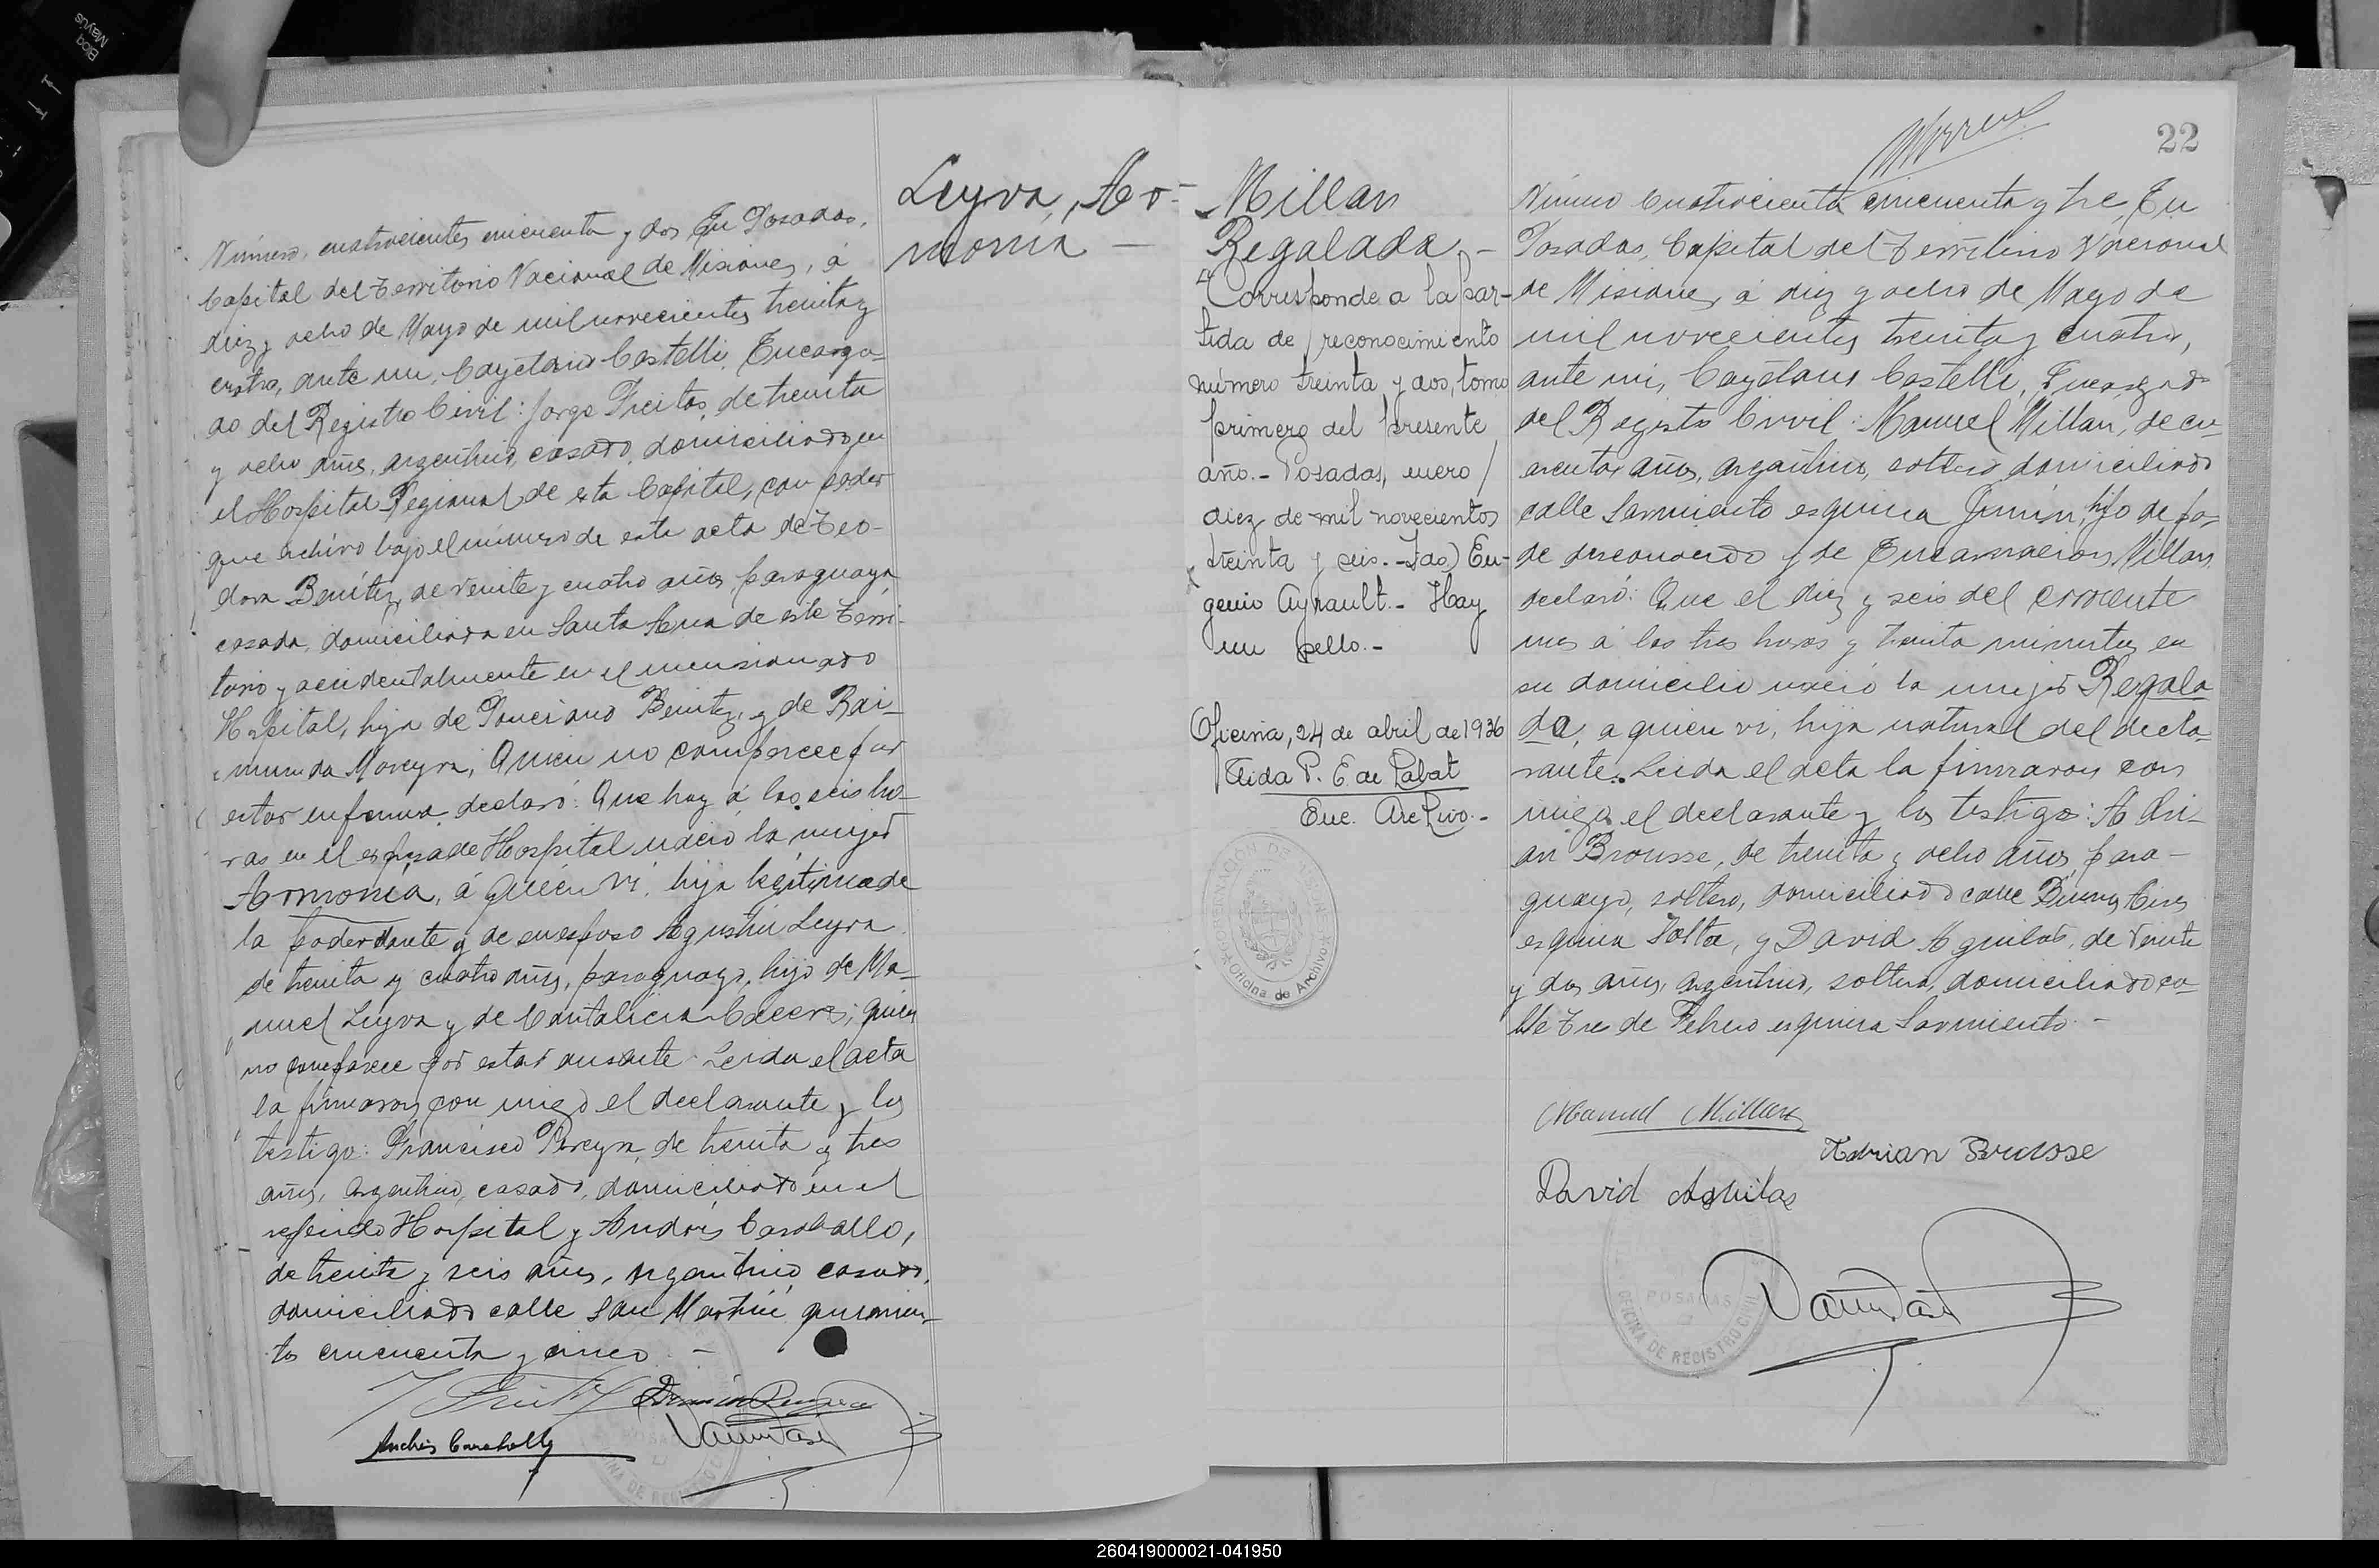 Número, cuatrocientos cincuenta y dos En Posadas,
Capital del Territorio Nacional de Misiones, á
diez y ocho de Mayo de mil novecientos treinta y
cuatro, ante mi, Cayetano Castelli, Encarga-
do del Registro Civil: Jorge Freitas, de treinta
y ocho años, argentino, casado, domiciliado en
el Hospital Regional de esta Capital, con poder
que archivo bajo el número de esta acta de Teo-
dora Benítez, de veinte y cuatro años, paraguaya
casada, domiciliada en Santa Ana de este Terri-
torio y accidentalmente en el mensionado
Hospital, hija de Ponciano Benitez, y de Rai-
munda Moreyra, Quien no comparece por
estar enferma, declaró: Que hoy á las seis ho-
ras en el expresado Hospital nació la mujer
Armonía, á quien ví, hija legítima de
la poderdante y de su esposo Agustin Leyva
de treinta y cuatro años, paraguayo, hijo de Ma-
nuel Leyva y de Cantalicia Caceres; quien
no comparece por estar ausente. Leida el acta
la firmaron con migo el declarante y los
testigo: Francisco Pereyra, de treinta y tres
años, argentino, casado, domiciliado en el
referido Hospital y Andrés Caraballo,
de treinta y seis años, argentino casado,
domiciliado calle San Martín quinien-
tos cincuenta y cinco. -
Andrés Caraballo
Leyva, Ar-
monía -
Millan
Regalada. -
"Corresponde a la par-
tida de reconocimiento
número treinta y dos, tomo
primero del presente
año. - Posadas, enero
diez de mil novecientos
treinta y seis. - Fdo) Eu-
genio Ayrault. - Hay
un sello. -
Oficina, 24 de abril de 1936
Elida P. E. de Labat
Enc. Archivo. -
GOBERNACION DE MISIONES
Oficina de Archivo
22
Número Cuatrocientos cincuenta y tre, En
Posadas, Capital del Territorio Nacional
de Misiones, á diez y ocho de Mayo de
mil novecientos treinta y cuatro,
ante mi, Cayetano Castelli, Encargado
del Registro Civil: Manuel Millan, de cu-
arenta años, argentino, soltero domiciliado
calle Sarmiento esquina Junín, hijo de pa-
dre desconocido y de Encarnacion Millan
declaró: Que el diez y seis del corriente
mes á las tres horas y treinta minutos en
su domicilio nació la mujer Regala
da, a quien vi, hija natural del decla-
rante. Leida el acta la firmaron con
migo el declarante y los testigo: Adri-
an Brousse, de treinta y ocho años, para-
guayo, soltero, domiciliado calle Buenos Aires
esquina Salta, y David Aguilar, de veinte
y dos años, argentino, soltero, domiciliado ca-
lle Tres de Febrero esquina Sarmiento. -
Manuel Millan
Adrian Brousse
David Aguilar
POSADAS
OFICINA DE REGISTRO CIVIL
260419000021-041950